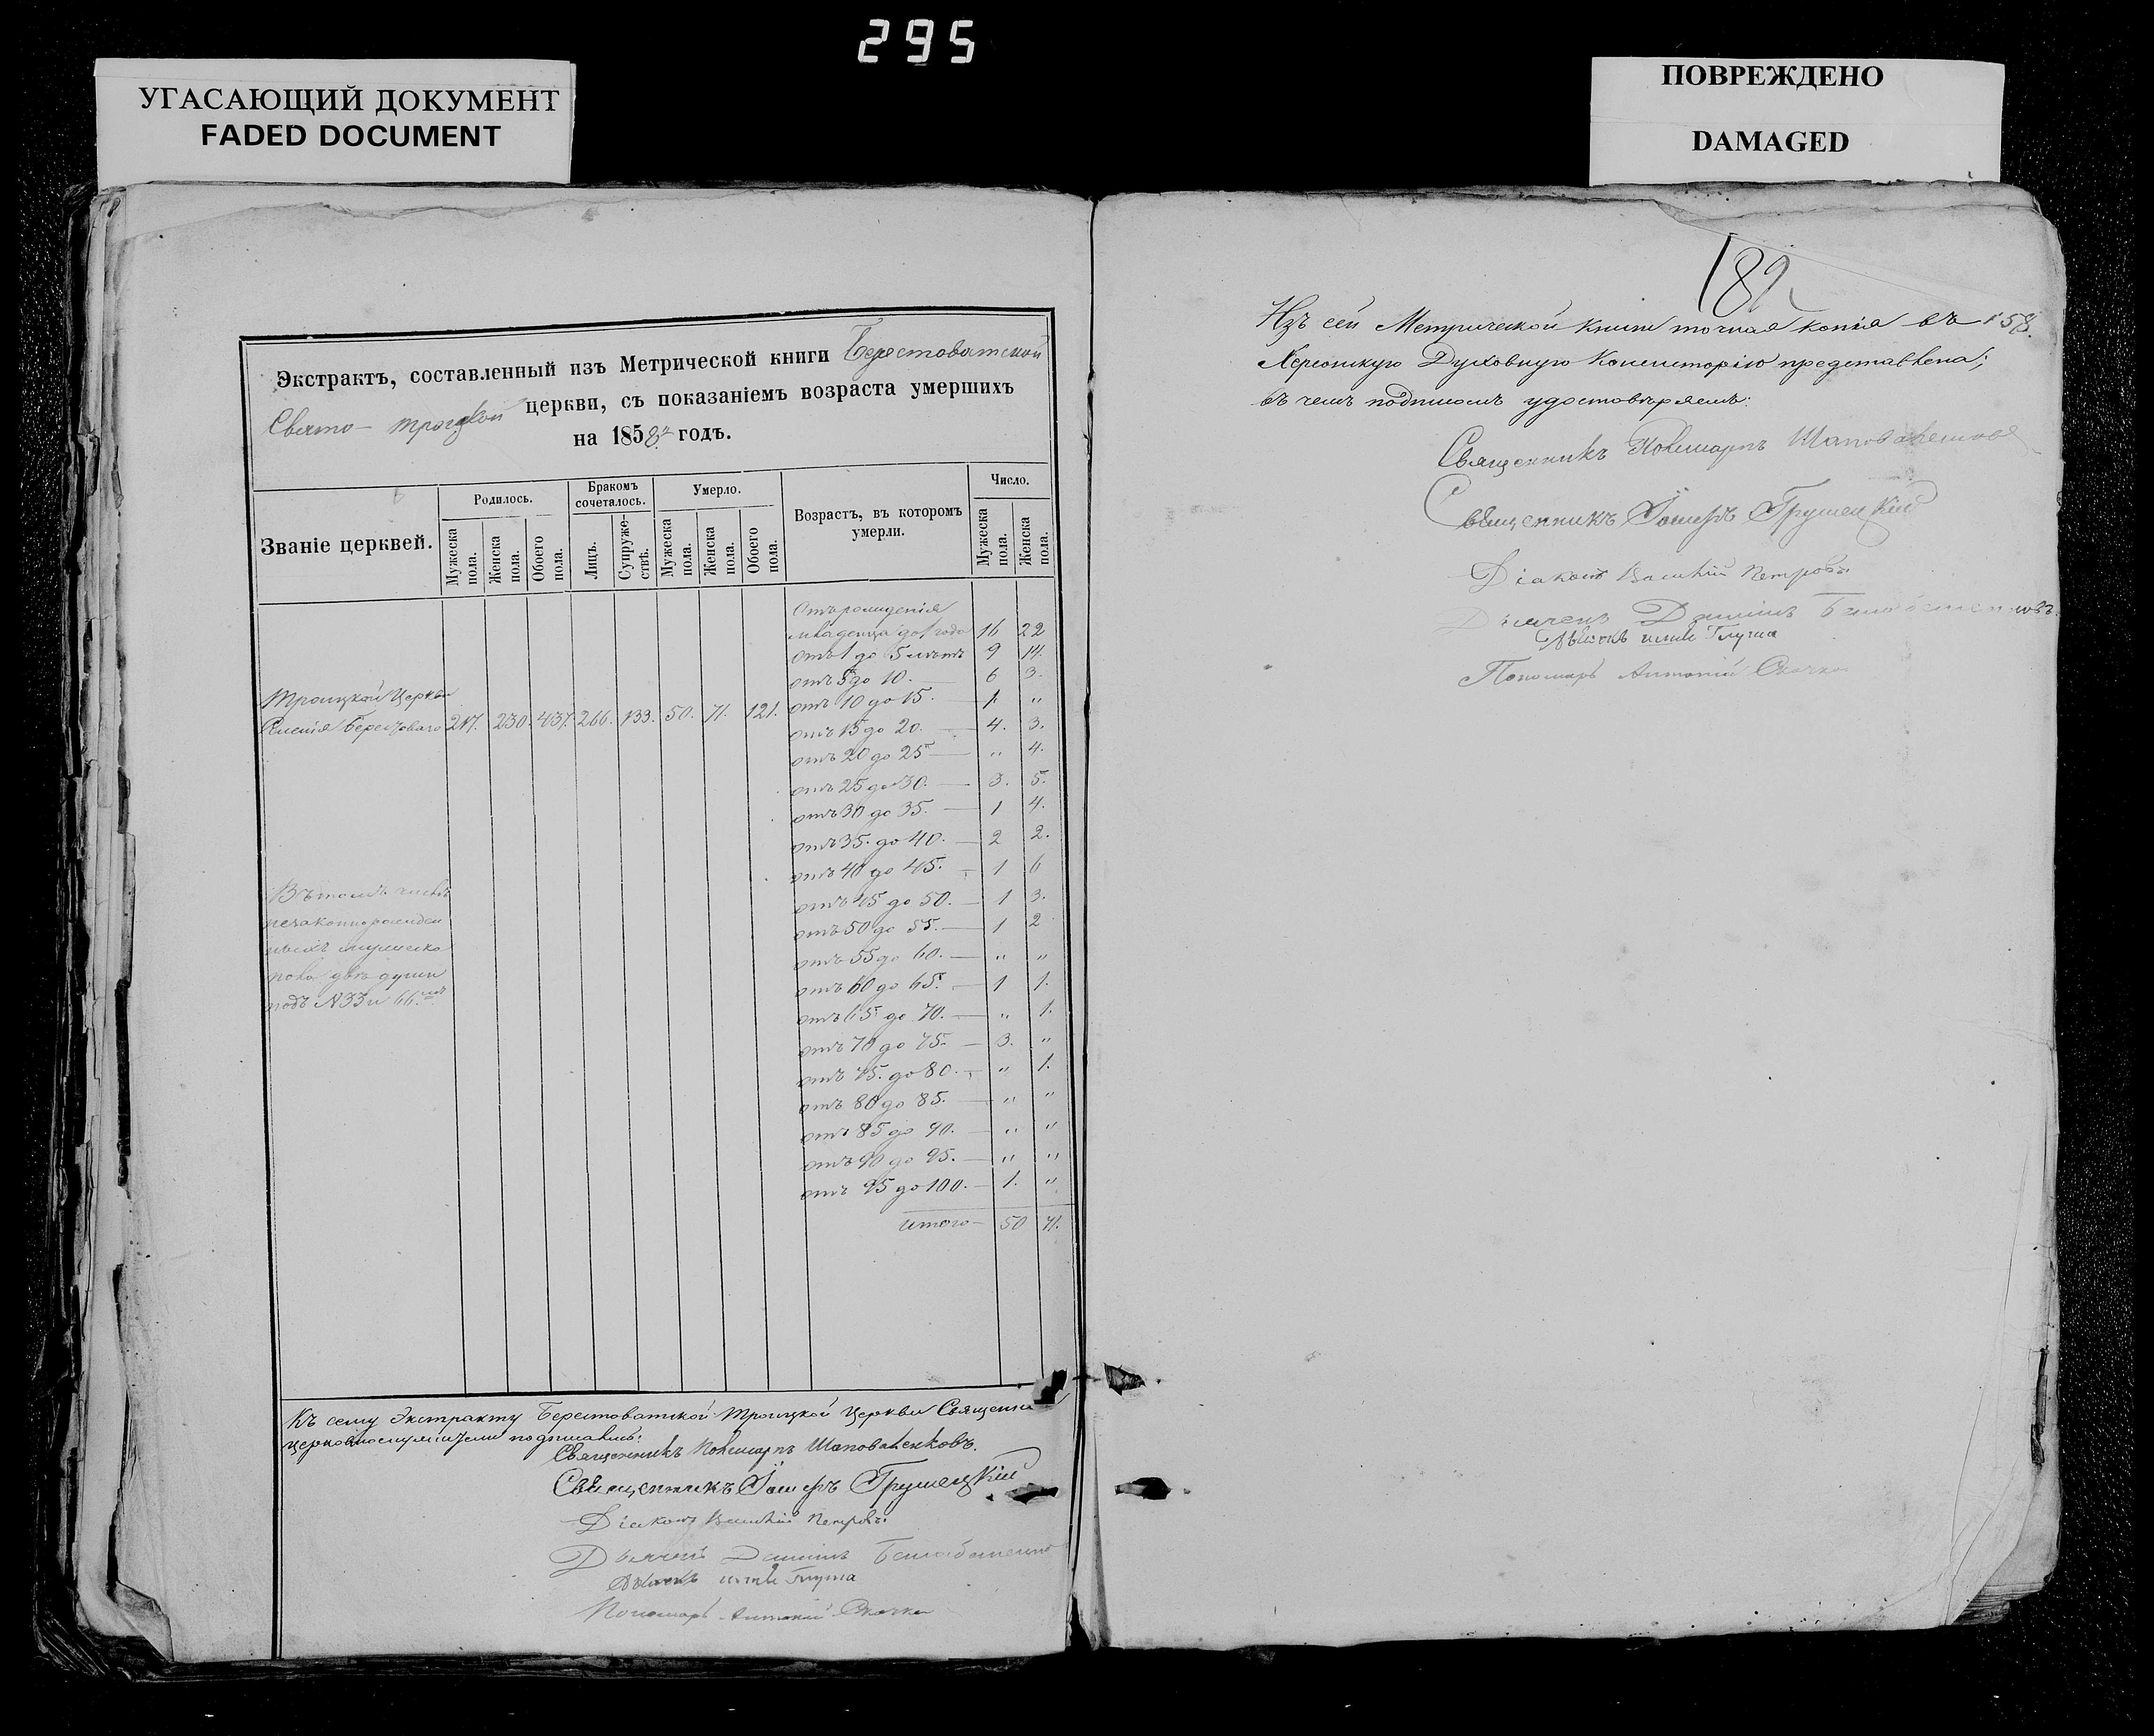 295
УГАСАЮЩИЙ ДОКУМЕНТ
FADED DOCUMENT
ПОВРЕЖДЕНО
DAMAGED
Экстрактъ, составленный изъ Метрической книги Берестоватской
Свято-Троицкой церкви, съ показаніемъ возраста умершихъ
на 1858й годъ.
Званіе церквей.
Родилось.
Мужеска пола.
Женска пола.
Обоего пола.
Бракомъ сочеталось.
Лицъ.
Супруже-ствъ.
Умерло.
Мужеска пола.
Женска пола.
Обоего пола.
Возрастъ, въ которомъ умерли.
Число.
Мужеска пола.
Женска пола.
Троицкой Церкви
217. 230. 437. 266. 133. 50. 71. 121.
Отъ рожденія
младенца до 1 года 16 22
отъ 1 до 5 лѣтъ 9 14.
отъ 5 до 10. 6 3.
отъ 10 до 15. 1. "
отъ 15 до 20. 4. 3.
отъ 20 до 25 " 4.
отъ 25 до 30. 3. 5.
отъ 30 до 35. 1 4.
отъ 35. до 40. 2 2.
отъ 40 до 45. 1 6
отъ 45 до 50. 1 3.
отъ 50 до 55. 1 2
отъ 55 до 60. " "
отъ 60 до 65. 1 1.
отъ 65 до 70. " 1.
отъ 70 до 75. 3. "
отъ 75. до 80. " 1.
отъ 80 до 85. " "
отъ 85 до 90. " "
отъ 90 до 95. " "
отъ 95 до 100. 1. "
итого 50 71.
Въ томъ числѣ
незаконнорожден
ныхъ мужеска
пола двѣ души
подъ № 33 и 66.
Къ сему Экстракту Берестоватской Троицкой Церкви Священно
церковнослужители подписались:
Священникъ Поликарпъ Шаповаленковъ.
Священникъ Іосифъ Грушецкій
Діаконъ Василій Петровъ
Дьячекъ Даніилъ
Дьячекъ Глуща
Пономарь Антоній Скачко
182
Изъ сей Метрической книги точная копія въ 158.
Херсонскую Духовную Консисторію представлена;
въ чемъ подписомъ удостовѣряемъ:
Священникъ Поликарпъ Шаповаленковъ
Священникъ Іосифъ Грушецкій
Діаконъ Василій Петровъ
Дьячекъ Даніилъ
Дьячекъ Глуща
Пономарь Антоній Скачко